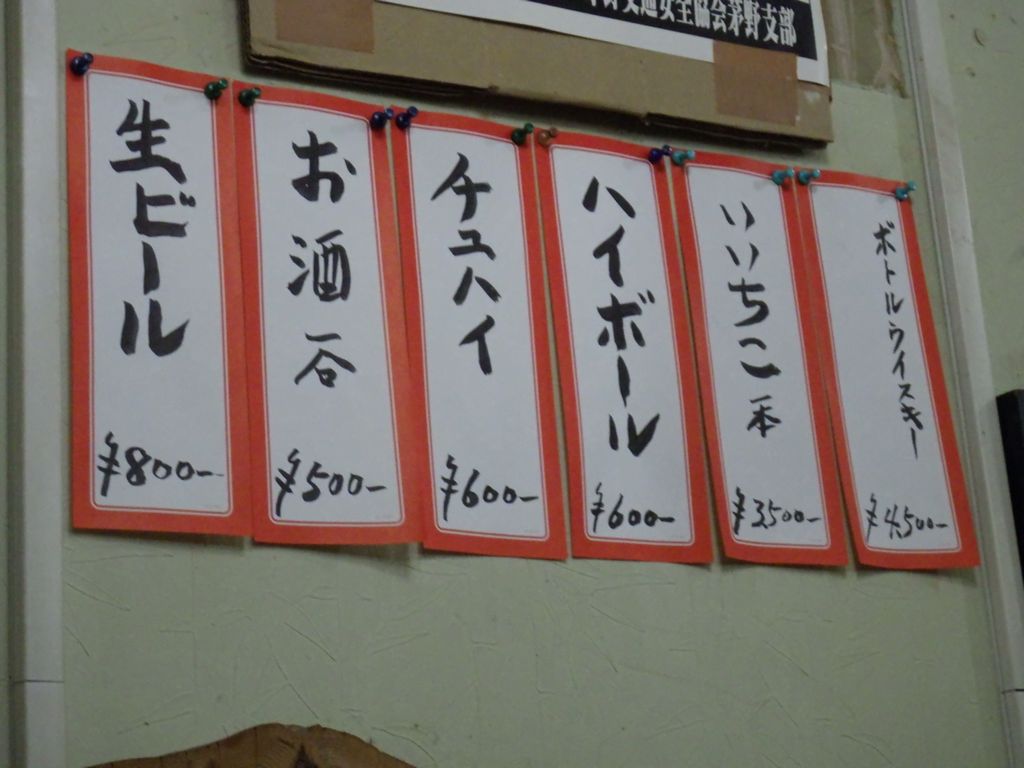 交通安全協会茅野支部
生ビール
¥800-
お酒
¥500-
チュハイ
¥600-
ハイボール
¥600-
いいちこ一本
¥3,500-
ボトルウイスキー
¥4,500-